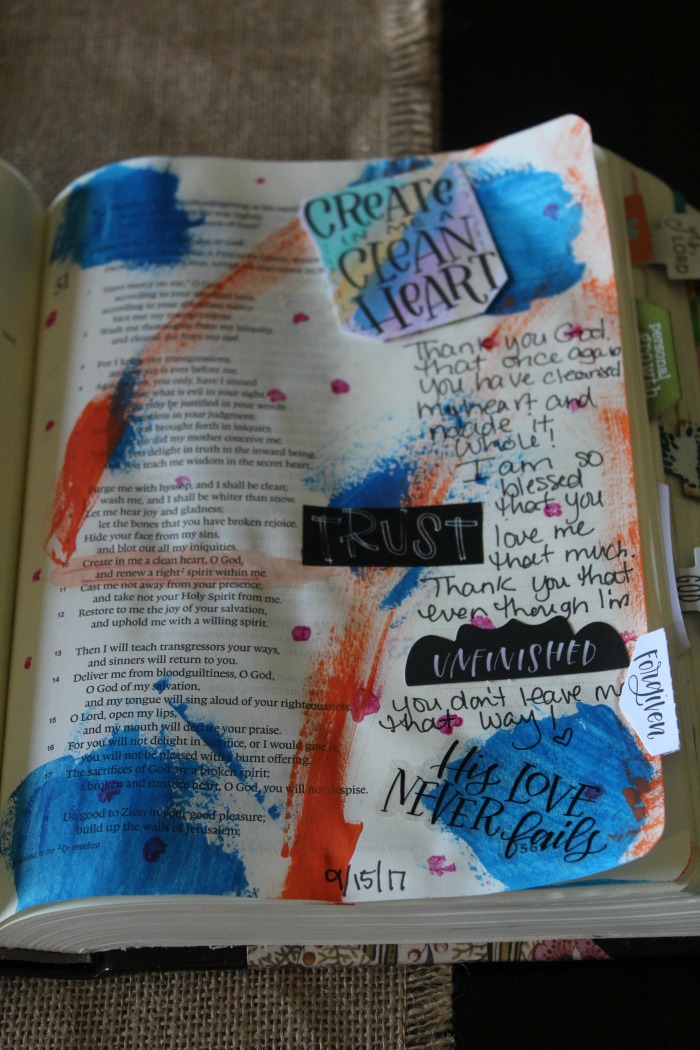 51
Have mercy on me, O God,
according to your
blot out my
Wash me thoroughly from my iniquity,
and cleanse me from my sin!
For I know my transgressions,
is ever before me.
you, only, have I sinned
what is evil in your sight,
may be justified in your words
in your judgment.
brought forth in iniquity,
did my mother conceive me.
you delight in truth in the inward being,
you teach me wisdom in the secret heart.
Purge me with hyssop, and I shall be clean;
wash me, and I shall be whiter than snow.
Let me hear joy and gladness;
let the bones that you have broken rejoice.
Hide your face from my sins,
and blot out all my iniquities.
Create in me a clean heart, O God,
and renew a right spirit within me.
11 Cast me not away from your presence,
and take not your Holy Spirit from me.
12 Restore to me the joy of your salvation,
and uphold me with a willing spirit.
13 Then I will teach transgressors your ways,
and sinners will return to you.
14 Deliver me from bloodguiltiness, O God,
O God of my salvation,
and my tongue will sing aloud of your righteousness.
15 O Lord, open my lips,
and my mouth will declare your praise.
16 For you will not delight in sacrifice, or I would give it;
you will not be pleased with a burnt offering.
17 The sacrifices of God are a broken spirit;
a broken and contrite heart, O God, you will not despise.
Do good to Zion in your good pleasure;
build up the walls of Jerusalem;
CREATE
IN ME A
CLEAN
HEART
Thank you God.
that once again
you have cleansed
my heart and
made it
whole!
I am so
blessed
that you
love me
that much.
Thank you that
even though I'm
TRUST
UNFINISHED
you don't leave me
that way!
His LOVE
NEVER fails
9/15/17
Forgiven
LORD
personal
growth
GOD